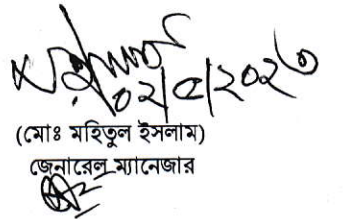 ০২/৫/২০২৩
(মোঃ মহিতুল ইসলাম)
জেনারেল ম্যানেজার